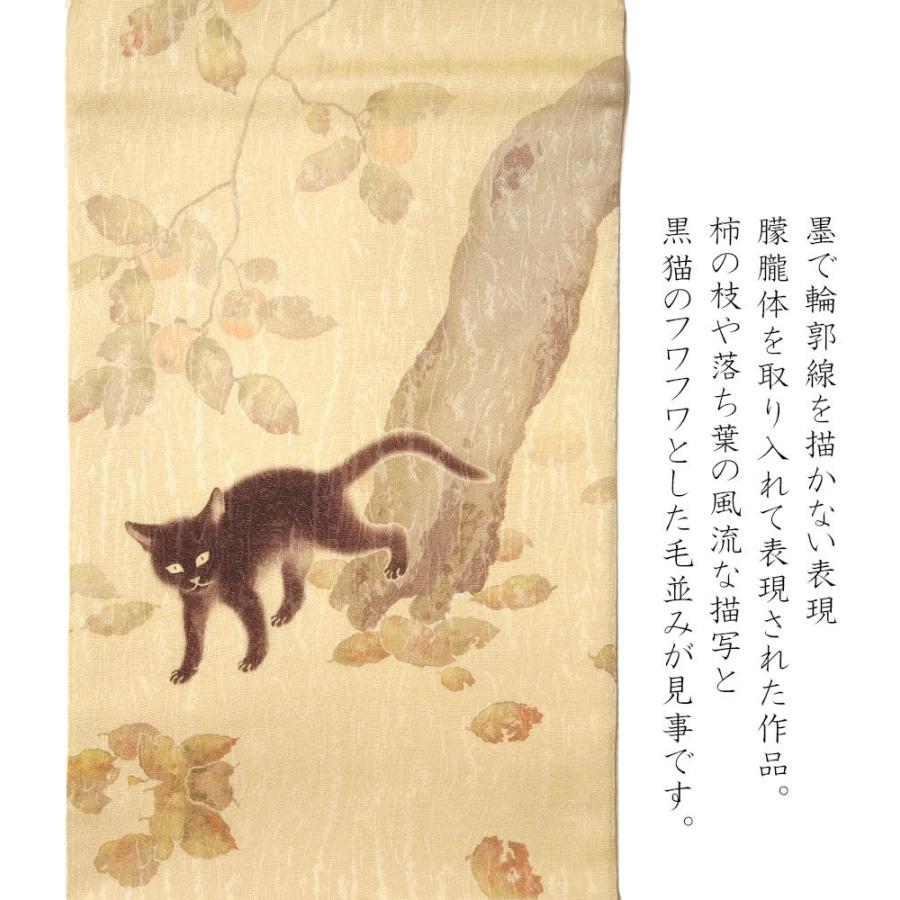 墨で輪郭線を描かない表現
朦朧体を取り入れて表現された作品。
柿の枝や落ち葉の風流な描写と
黒猫のフワフワとした毛並みが見事です。